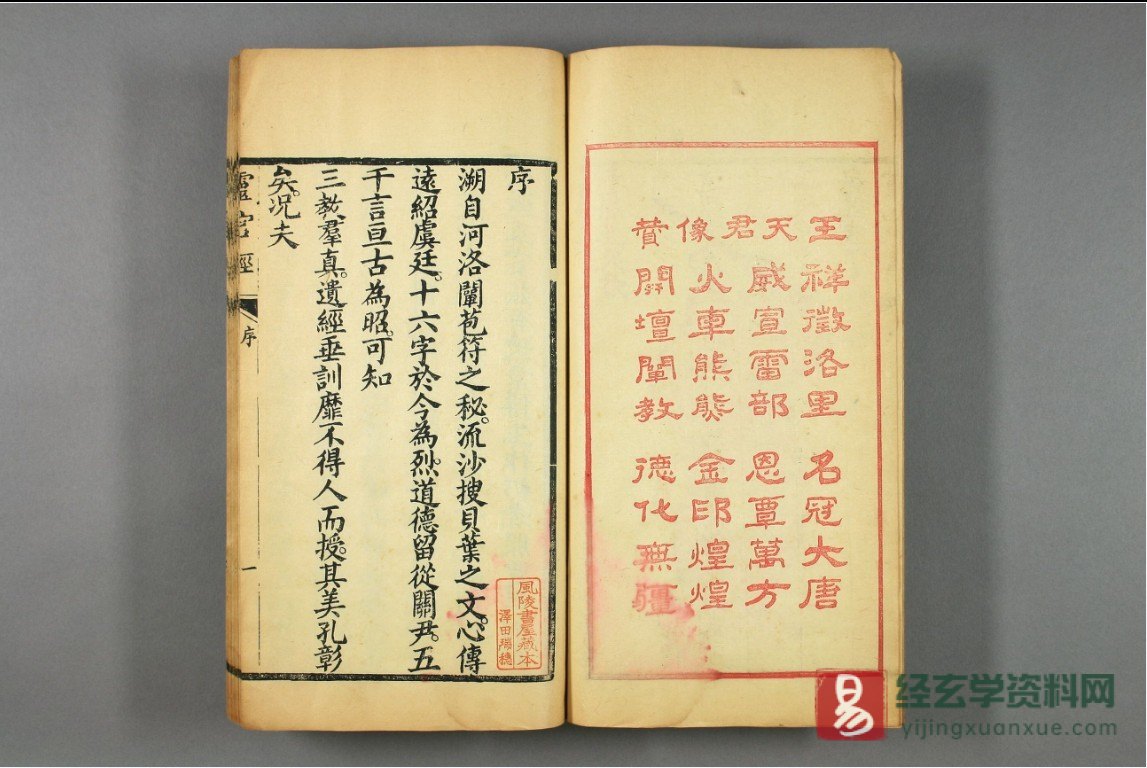 王天君像贊
祥徵洛里 名冠大唐
威宣雷部 恩覃萬方
火車熊熊 金印煌煌
開壇闡教 德化無疆
序
溯自河洛闡苞符之秘。流沙搜貝葉之文。心傳
遠紹虞廷。十六字於今為烈。道德留從關尹。五
千言亘古為昭。可知
三教羣真。遺經垂訓靡不得人而授。其美孔彰
矣。況夫
靈官經 序 一
風陵書屋藏本
澤田瑞穗
易
经玄学资料网
yijingxuanxue.com